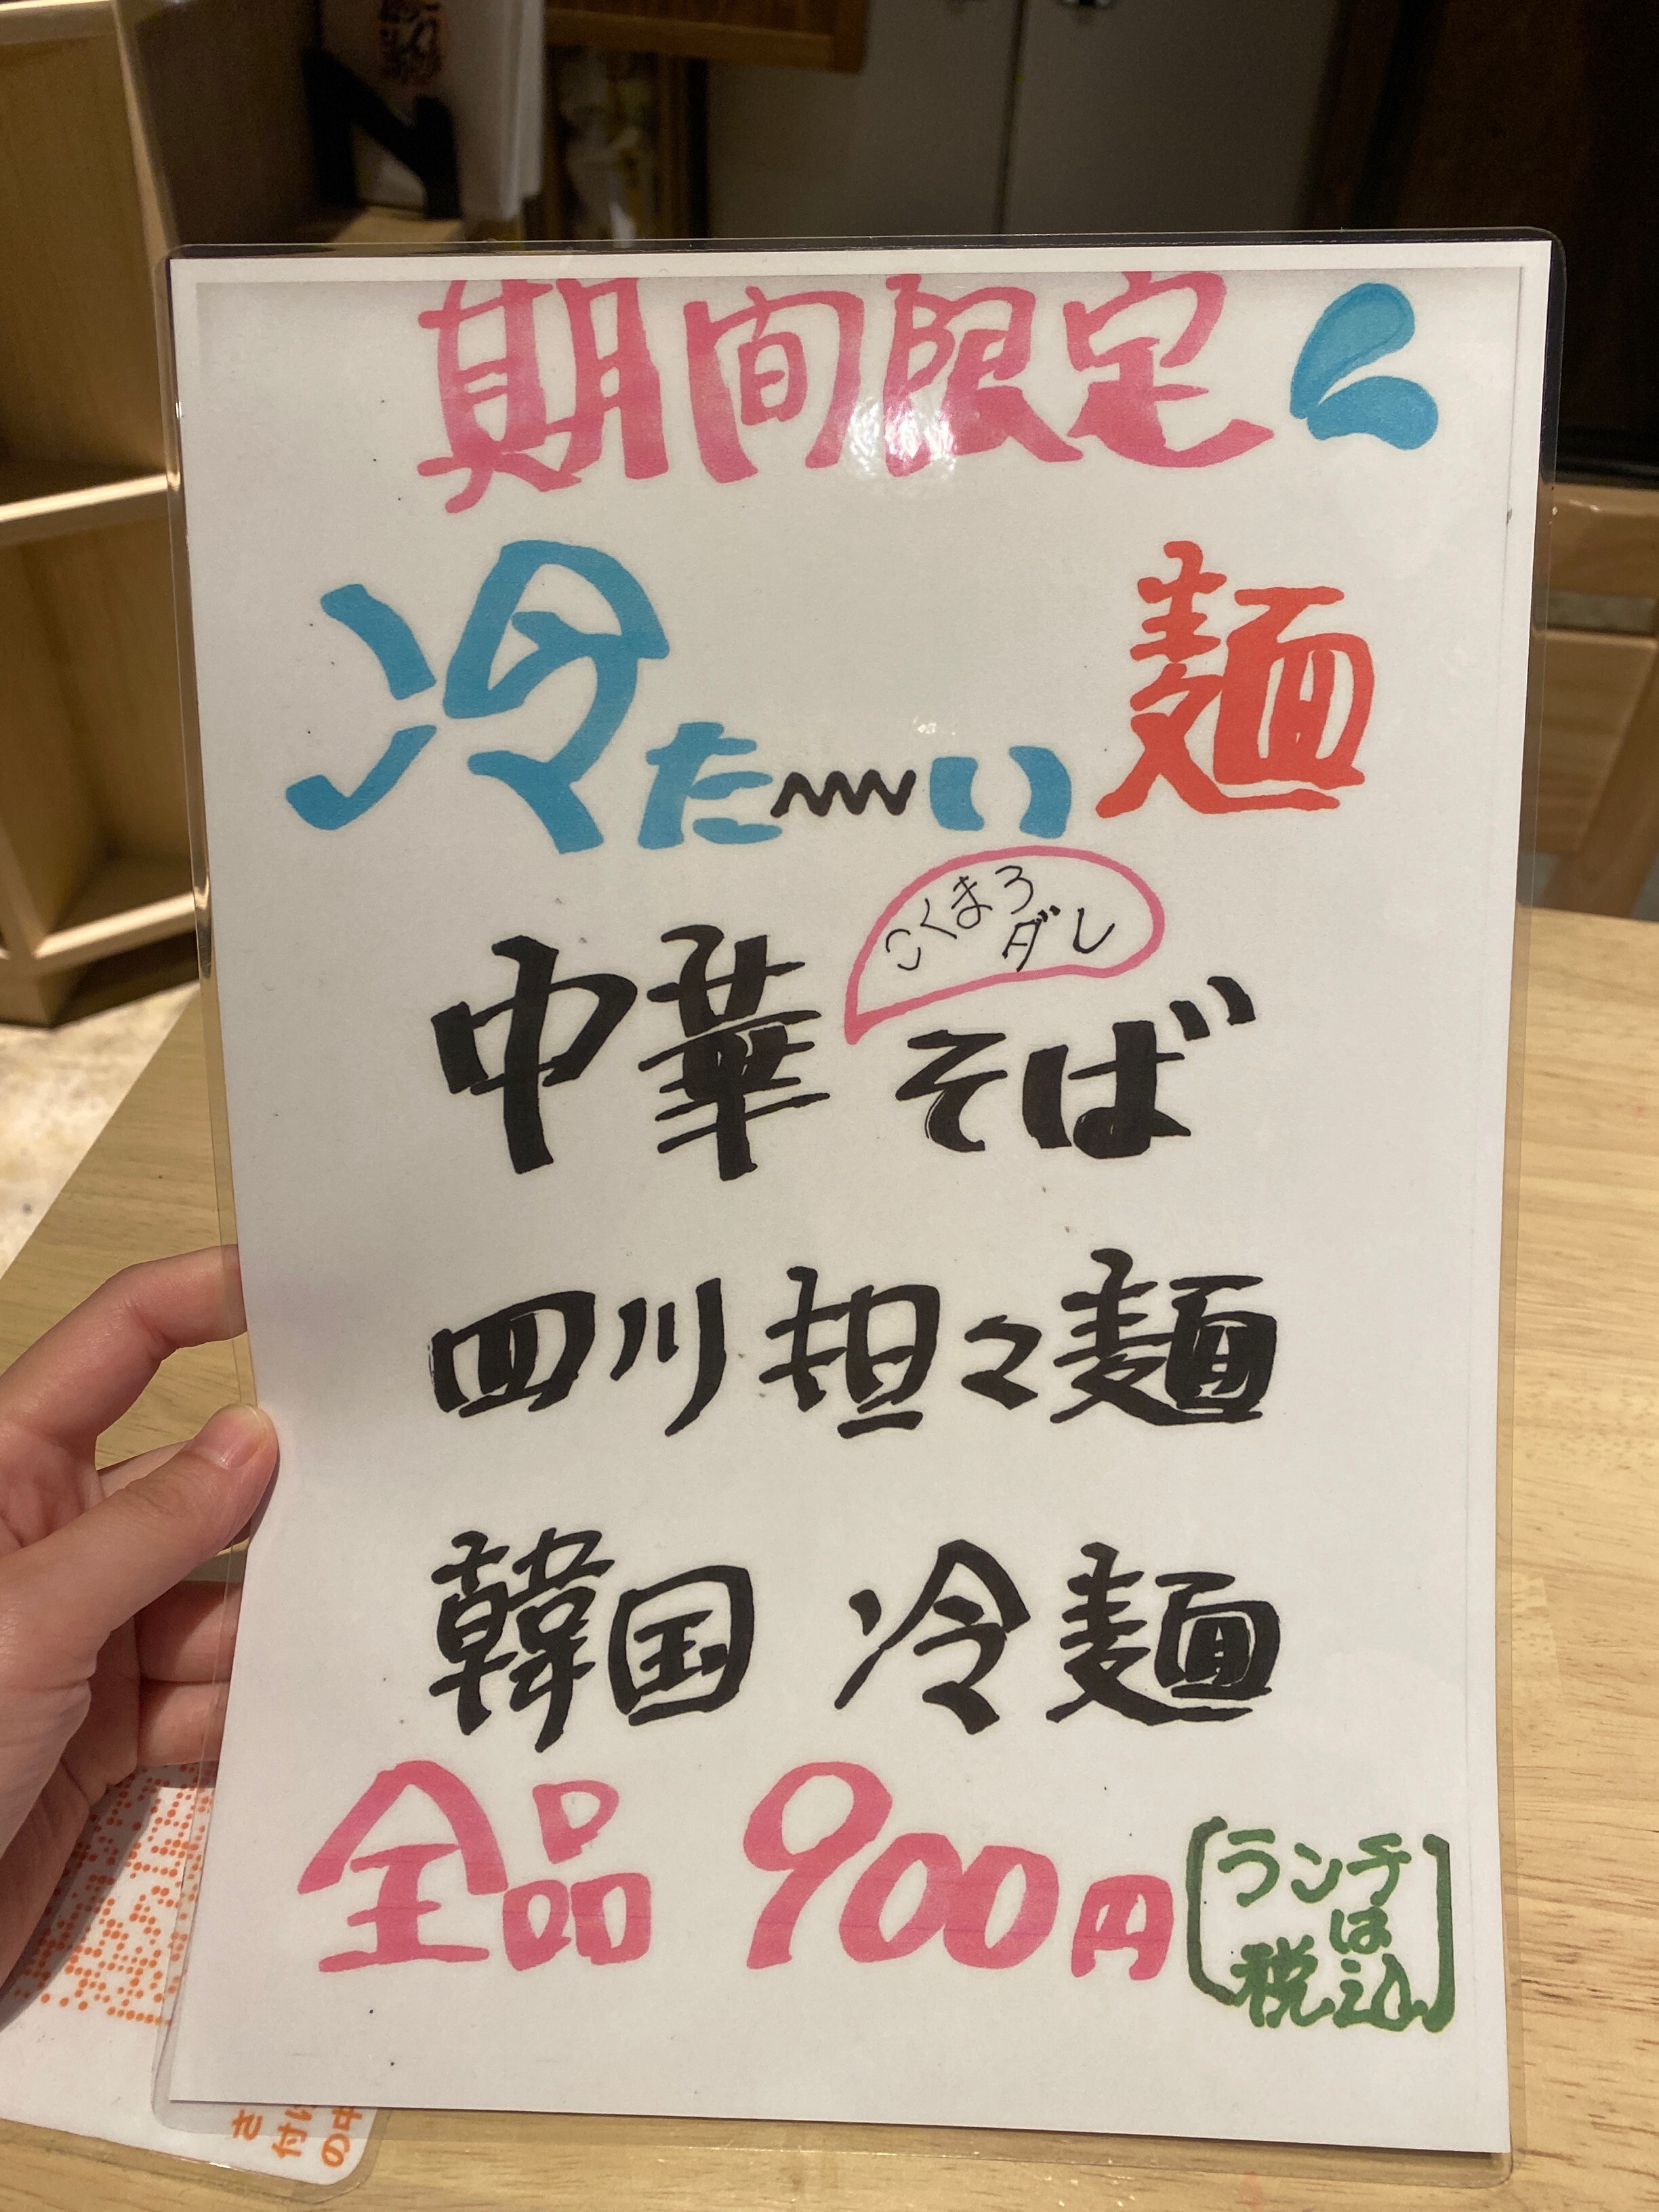 期間限定
冷た〰い麺
こくまろ
ダレ
中華そば
四川担々麺
韓国 冷麺
全品 900円
[ランチ
は
税込]